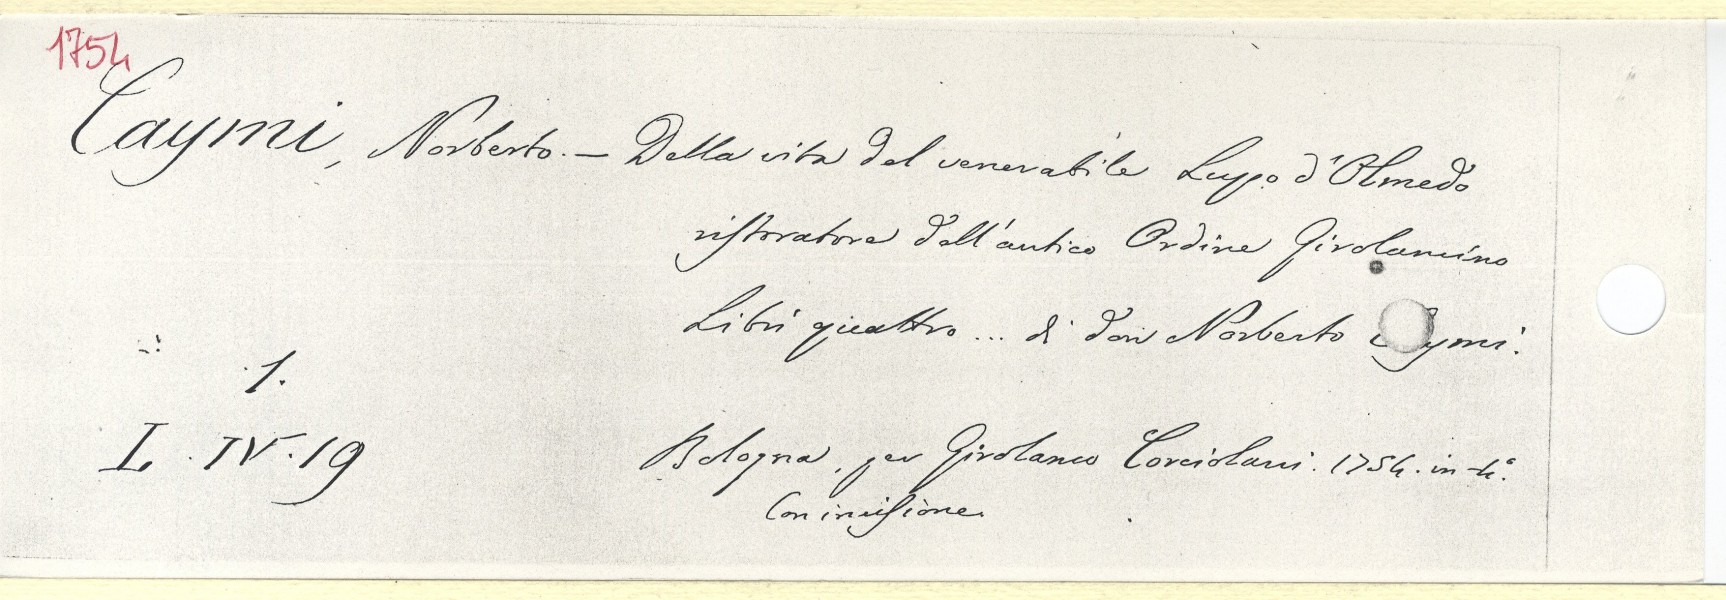 1754
Caymi, Norberto. — Della vita del venerabile Luppo d'Olmedo
ristoratore dell'antico Ordine Girolamino
Libri quattro ... di don Norberto Caymi.
1.
I. IV. 19
Bologna, per Girolamo Corciolani. 1754. in-4°.
Con incisione.